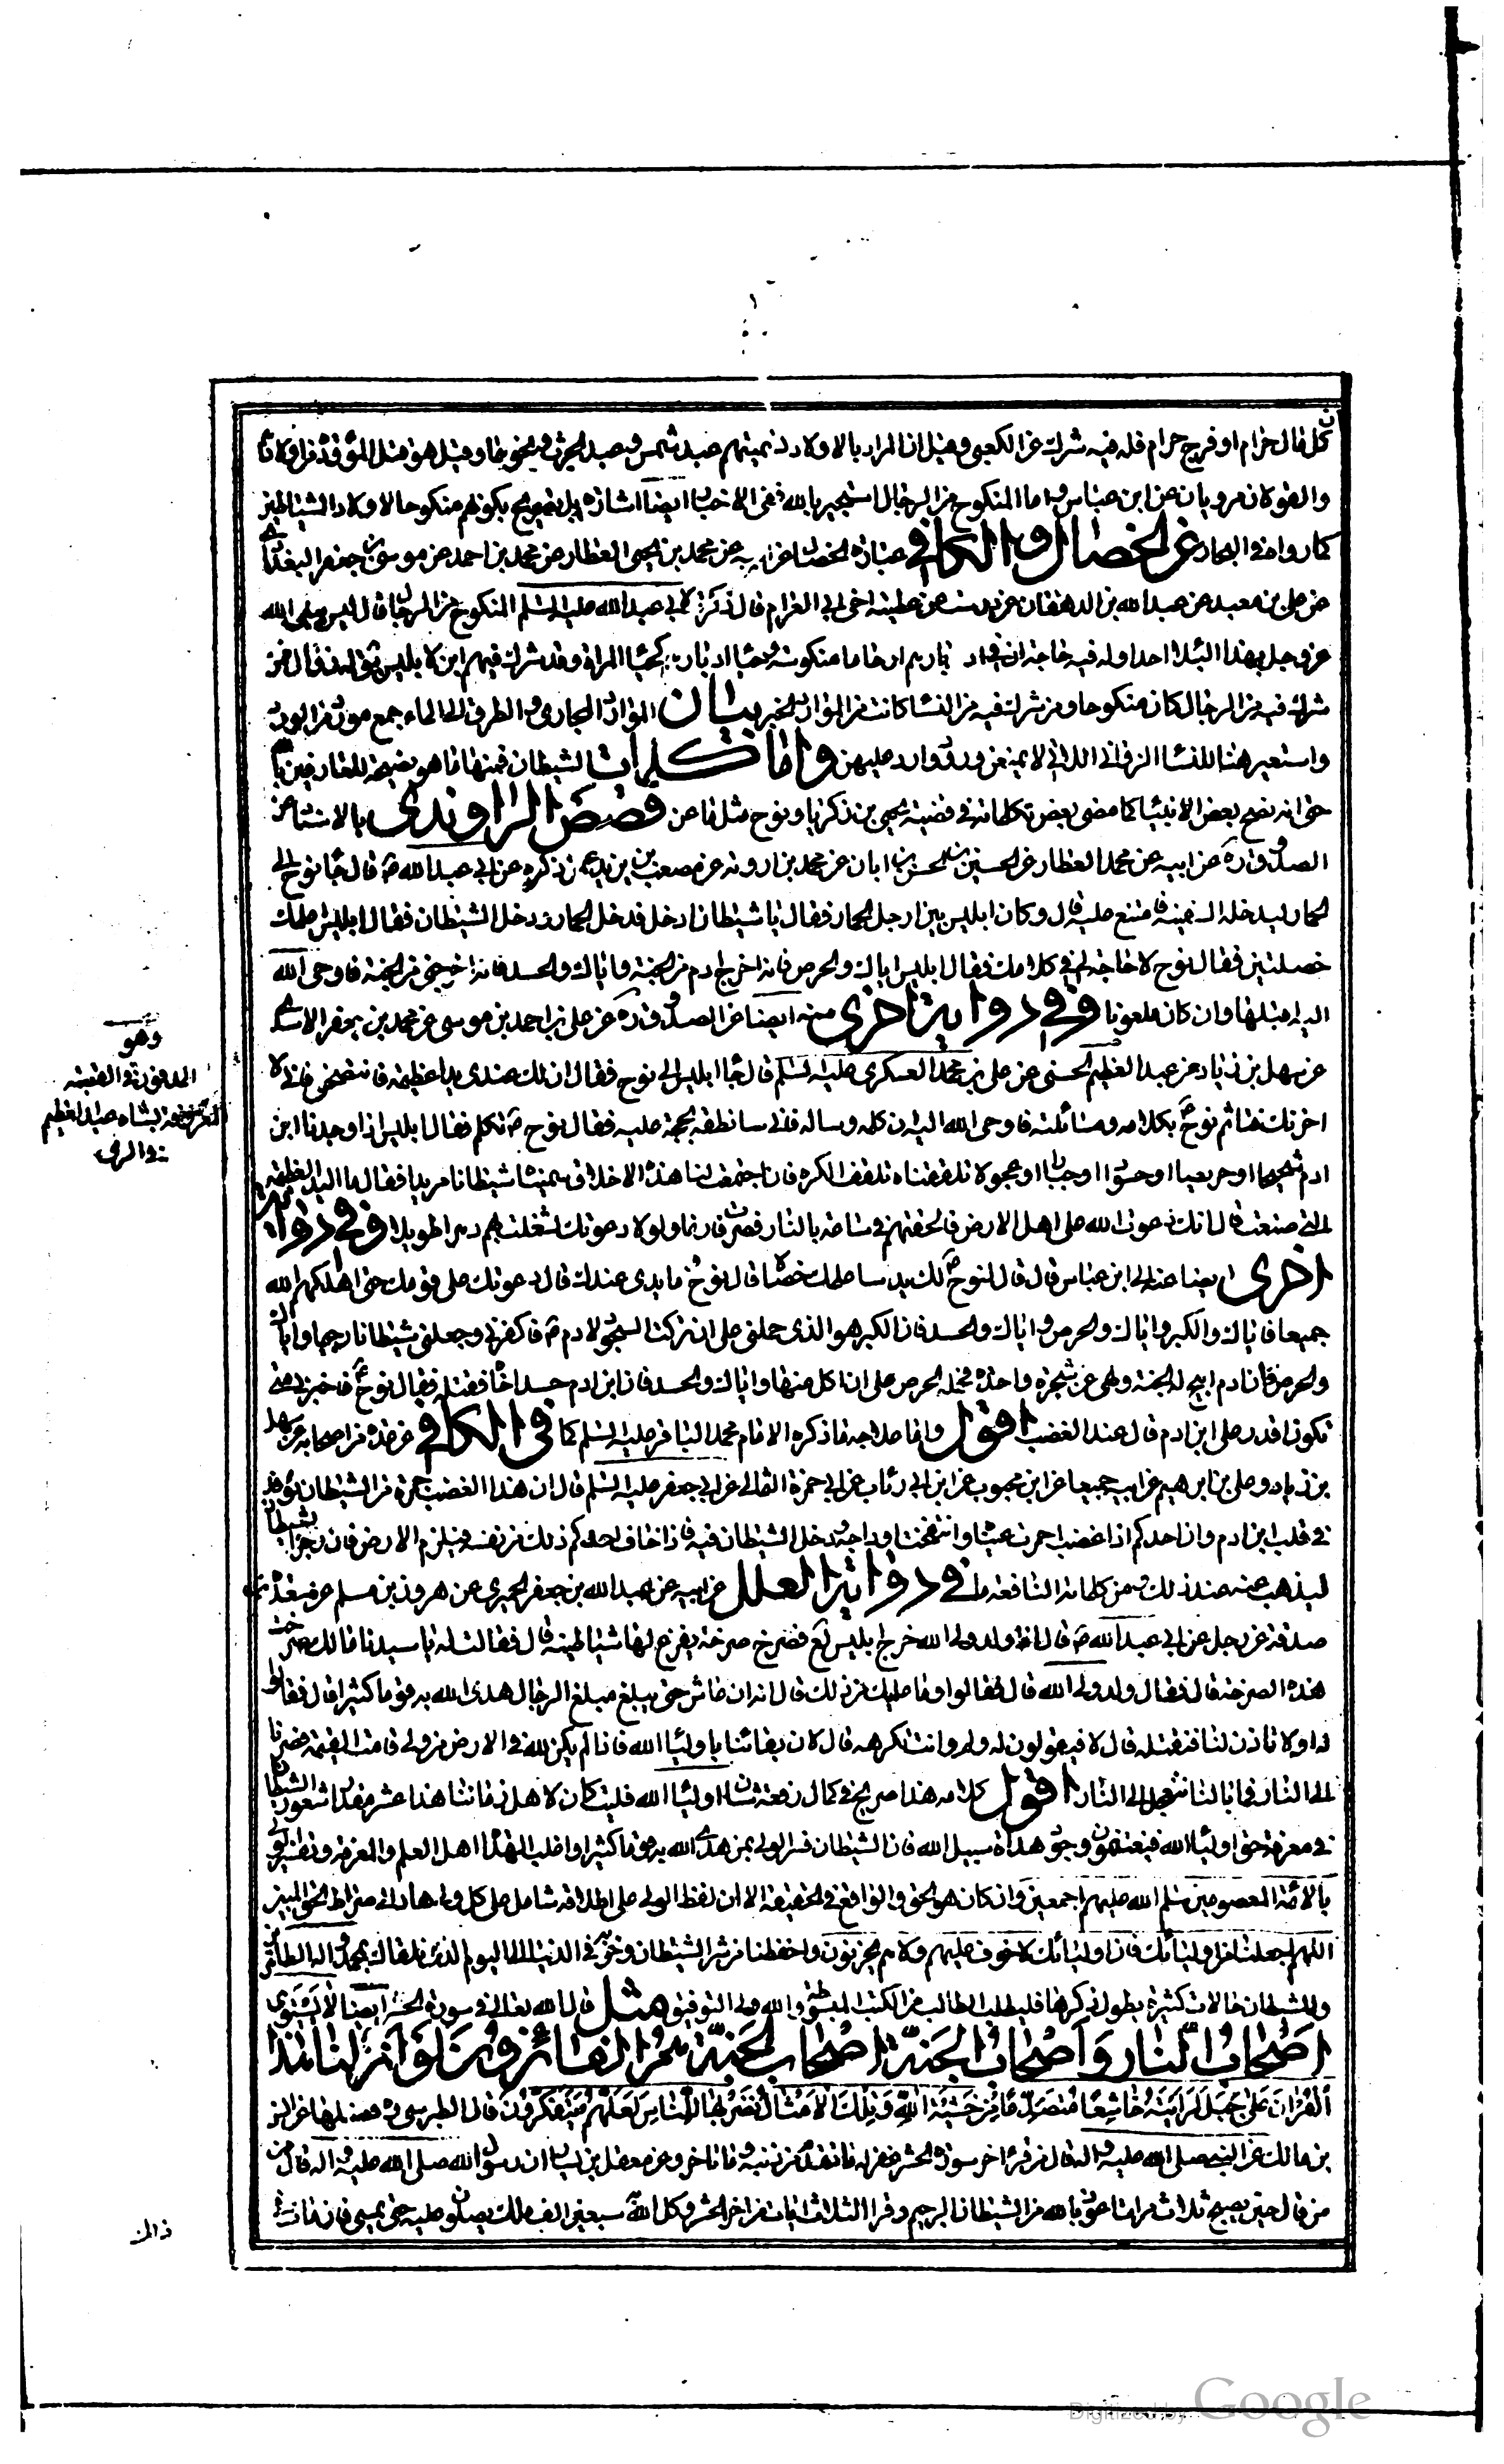 كل مال حرام او فرج حرام فله فيه شرك عن الكعبى وقيل ان المراد بالاولاد تسميتهم عبد شمس وعبد الحرث ونحوهما وقيل هو قتل الموؤدة من اولادهم
والقولان مرويان عن ابن عباس واما المنكوح من الرجال استجير بالله ففى الاخبار ايضا اشارة بل تصريح بكونهم منكوحا لاولاد الشياطين
كما رواه فى البحار عن الخصال والكافى عبارة الخصال عن ابيه عن محمد بن يحيى العطار عن محمد بن احمد عن موسى بن جعفر البغدادى
عن على بن معبد عن عبدالله بن الدهقان عن درست عن عطية اخى ابى العرام قال ذكرت لابى عبدالله عليه السلم المنكوح من الرجال قال ليس يبلى الله
عز وجل بهذا البلاء احدا وله فيه حاجة ان فى ادبارهم ارحاما منكوسة وحياء ادبارهم كحياء المراة وقد شرك فيهم ابن لابليس يقال له زوال فمن
شرك فيه من الرجال كان منكوحا ومن شرك فيه من النساء كانت من الموارد الخبر بيان الموارد المجارى والطرق الى الماء جمع مورد من الورود
واستعير هنا للنساء الزوانى اللاتى لا يمنعن ورود وارد عليهن واما تكلمات الشيطان فمنها ما هو نصيحة للعارفين به
حتى انه نصح بعض الانبياء كما مضى بعض تكلماته فى قضية يحيى بن زكريا ونوح مثل ما عن قصص الراوندى بالاسناد عن
الصدوق ره عن ابيه عن محمد العطار عن الحسين بن الحسن بن ابان عن محمد بن ارومه عن مصعب بن يزيد عمن ذكره عن ابى عبدالله ع قال جاء نوح الى
الحمار ليدخله السفينة فامتنع عليه قال وكان ابليس بين ارجل الحمار فقال يا شيطان ادخل فدخل الحمار ودخل الشيطان فقال ابليس اعلمك
خصلتين فقال نوح لا حاجة لى فى كلامك فقال ابليس اياك والحرص فانه اخرج ادم من الجنة واياك والحسد فانه اخرجنى من الجنة فاوحى الله
اليه اقبلها وان كان ملعونا وفى رواية اخرى منه ايضا عن الصدوق ره عن على بن احمد بن موسى عن محمد بن جعفر الاسدى
عن سهل بن زياد عن عبد العظيم الحسنى عن على بن محمد العسكرى عليه السلم قال جاء ابليس الى نوح فقال ان لك عندى يدا عظيمة فانتصحنى فانى لا
اخونك فتاثم نوح ع بكلامه ومسائلته فاوحى الله اليه ان كلمه وساله فانى سانطقه بحجة عليه فقال نوح ع تكلم فقال ابليس اذا وجدنا ابن
ادم شحيحا او حريصا او حسودا او جبارا او عجولا تلقفناه تلقف الكرة فان اجتمعت لنا هذه الاخلاق سميناه شيطانا مريدا فقال ما اليد العظيمة
التى صنعت قال انك دعوت الله على اهل الارض فالحقتهم فى ساعة بالنار فصرت فارغا ولولا دعوتك لشغلت بهم دهرا طويلا وفى رواية
اخرى ايضا عنه الى ابن عباس قال قال لنوح ع لك يد ساعلمك خصالا قال نوح وما يدى عندك قال دعوتك على قومك حتى اهلكهم الله
جميعا فاياك والكبر واياك والحرص واياك والحسد فان الكبر هو الذى حملنى على ان تركت السجود لادم ع فاكفرنى وجعلنى شيطانا رجيما واياك
والحرص فان ادم ابيح له الجنة ونهى عن شجرة واحدة فحمله الحرص على ان اكل منها واياك والحسد فان ابن ادم حسد اخاه فقتله فقال نوح ع فاخبرنى متى
تكون اقدر على ابن ادم قال عند الغضب اقول واما علاجه ما ذكره الامام محمد الباقر عليه السلم كما فى الكافى عن عدة من اصحابه عن سهل
بن زياد وعلى بن ابرهيم عن ابيه جميعا عن ابن محبوب عن ابن رئاب عن ابى حمزة الثمالى عن ابى جعفر عليه السلم قال ان هذا الغضب جمرة من الشيطان توقد
فى قلب ابن ادم وان احدكم اذا غضب احمرت عيناه وانتفخت اوداجه ودخل الشيطان فيه فاذا خاف احدكم ذلك من نفسه فليلزم الارض فان رجز الشيطان
ليذهب عنه عند ذلك ومن كلماته النافعة ما فى رواية العلل عن ابيه عن عبدالله بن جعفر الحميرى عن هرون بن مسلم عن مسعدة بن
صدقة عن رجل عن ابى عبدالله ع قال اذا ولد ولى الله خرج ابليس لع فصرخ صرخة يفزع لها شياطينه قال فقالت له يا سيدنا مالك صرخت
هذه الصرخة قال فقال ولد ولى الله قال فقالوا وما عليك من ذلك قال انه ان عاش حتى يبلغ مبلغ الرجال هدى الله به قوما كثيرا قال فقالوا
له اولا تاذن لنا فنقتله قال لا فيقولون له ولم وانت تكرهه قال لان بقائنا باولياء الله فاذا لم يكن لله فى الارض من ولى قامت القيمة فصرنا
الى النار فما بالنا نتعجل الى النار اقول كلامه هذا صريح فى كمال رفعة شان اولياء الله فليت كان لاهل زماننا هذا عشر مقدار شعور الشيطان
فى معرفة حق اولياء الله فيغتنمون وجود هداة سبيل الله فان الشيطان فسر الولى بمن هدى الله به قوما كثيرا واغلب الهداة اهل العلم والمعرفة وتفسير الولى
بالائمة المعصومين سلم الله عليهم اجمعين وان كان هو الحق والواقع فى الحقيقة الا ان لفظ الولى على اطلاقه شامل على كل ولى هاد الى صراط الحق المبين
اللهم اجعلنا من اوليائك فان اوليائك لا خوف عليهم ولا هم يحزنون واحفظنا من شر الشيطان وحزبه فى الدنيا الى اليوم الذى نلقاك بمحمد واله الطاهرين
وللشيطان حالات كثيرة يطول ذكرها فليطلب الطالب من الكتب المبسوطة والله ولى التوفيق مثل قال الله تعالى فى سورة الحشر ايضا لا يَسْتَوى
اَصْحابُ النّارِ وَاَصْحابُ الجَنَّةِ اَصْحابُ الجَنَّةِ هُمُ الفائزونَ لَوْ اَنْزَلنا هذا
اَلْقُرْانَ عَلى جَبَلٍ لَرَاَيْتَهُ خاشِعًا مُتَصَدِّعًا مِنْ خَشْيَةِ اللّهِ وَتِلْكَ الاَمْثالُ نَضْرِبُها لِلنّاسِ لَعَلَّهُمْ يَتَفَكَّرُونَ قال الطبرسى ره فى فضلها عن انس
بن مالك عن النبى صلى الله عليه واله قال من قرء اخر سورة الحشر غفر له ما تقدم من ذنبه وما تاخر وعن معقل بن يسار ان رسول الله صلى الله عليه واله قال من
من قال حين يصبح ثلاث مرات اعوذ بالله من الشيطان الرجيم وقرا الثلاث ايات من اخر الحشر وكل الله سبعين الف ملك يصلون عليه حتى يمسى فان مات
وهو
المدفون فى القبة
المعروفة بشاه عبد العظيم
فى الرى
Digitized by Google